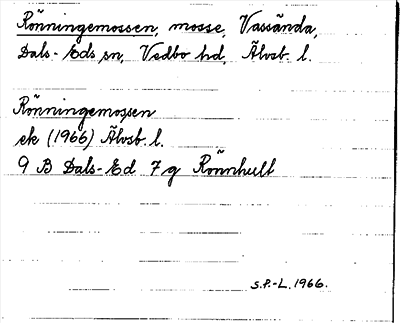 Rönningemossen, mosse, Vassända,
Dals-Eds sn, Vedbo hd, Älvsb. l.
Rönningemossen
ek (1966) Älvsb. l.
9 B Dals-Ed 7 g Rönnhult
S.P.-L. 1966.